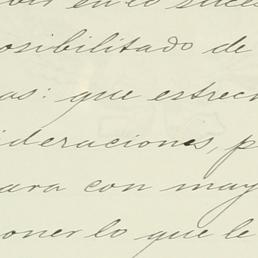 bir en lo suce
osibilitado de
as: que estrec
ideraciones, p
ara con may
oner lo que le